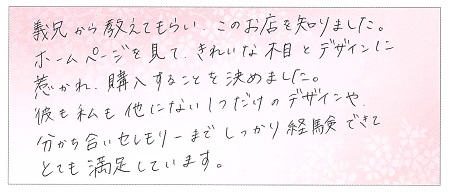 義兄から教えてもらい、このお店を知りました。
ホームページを見て、きれいな木目とデザインに
惹かれ、購入することを決めました。
彼も私も他にない1つだけのデザインや、
分かち合いセレモリーまでしっかり経験できて
とても満足しています。